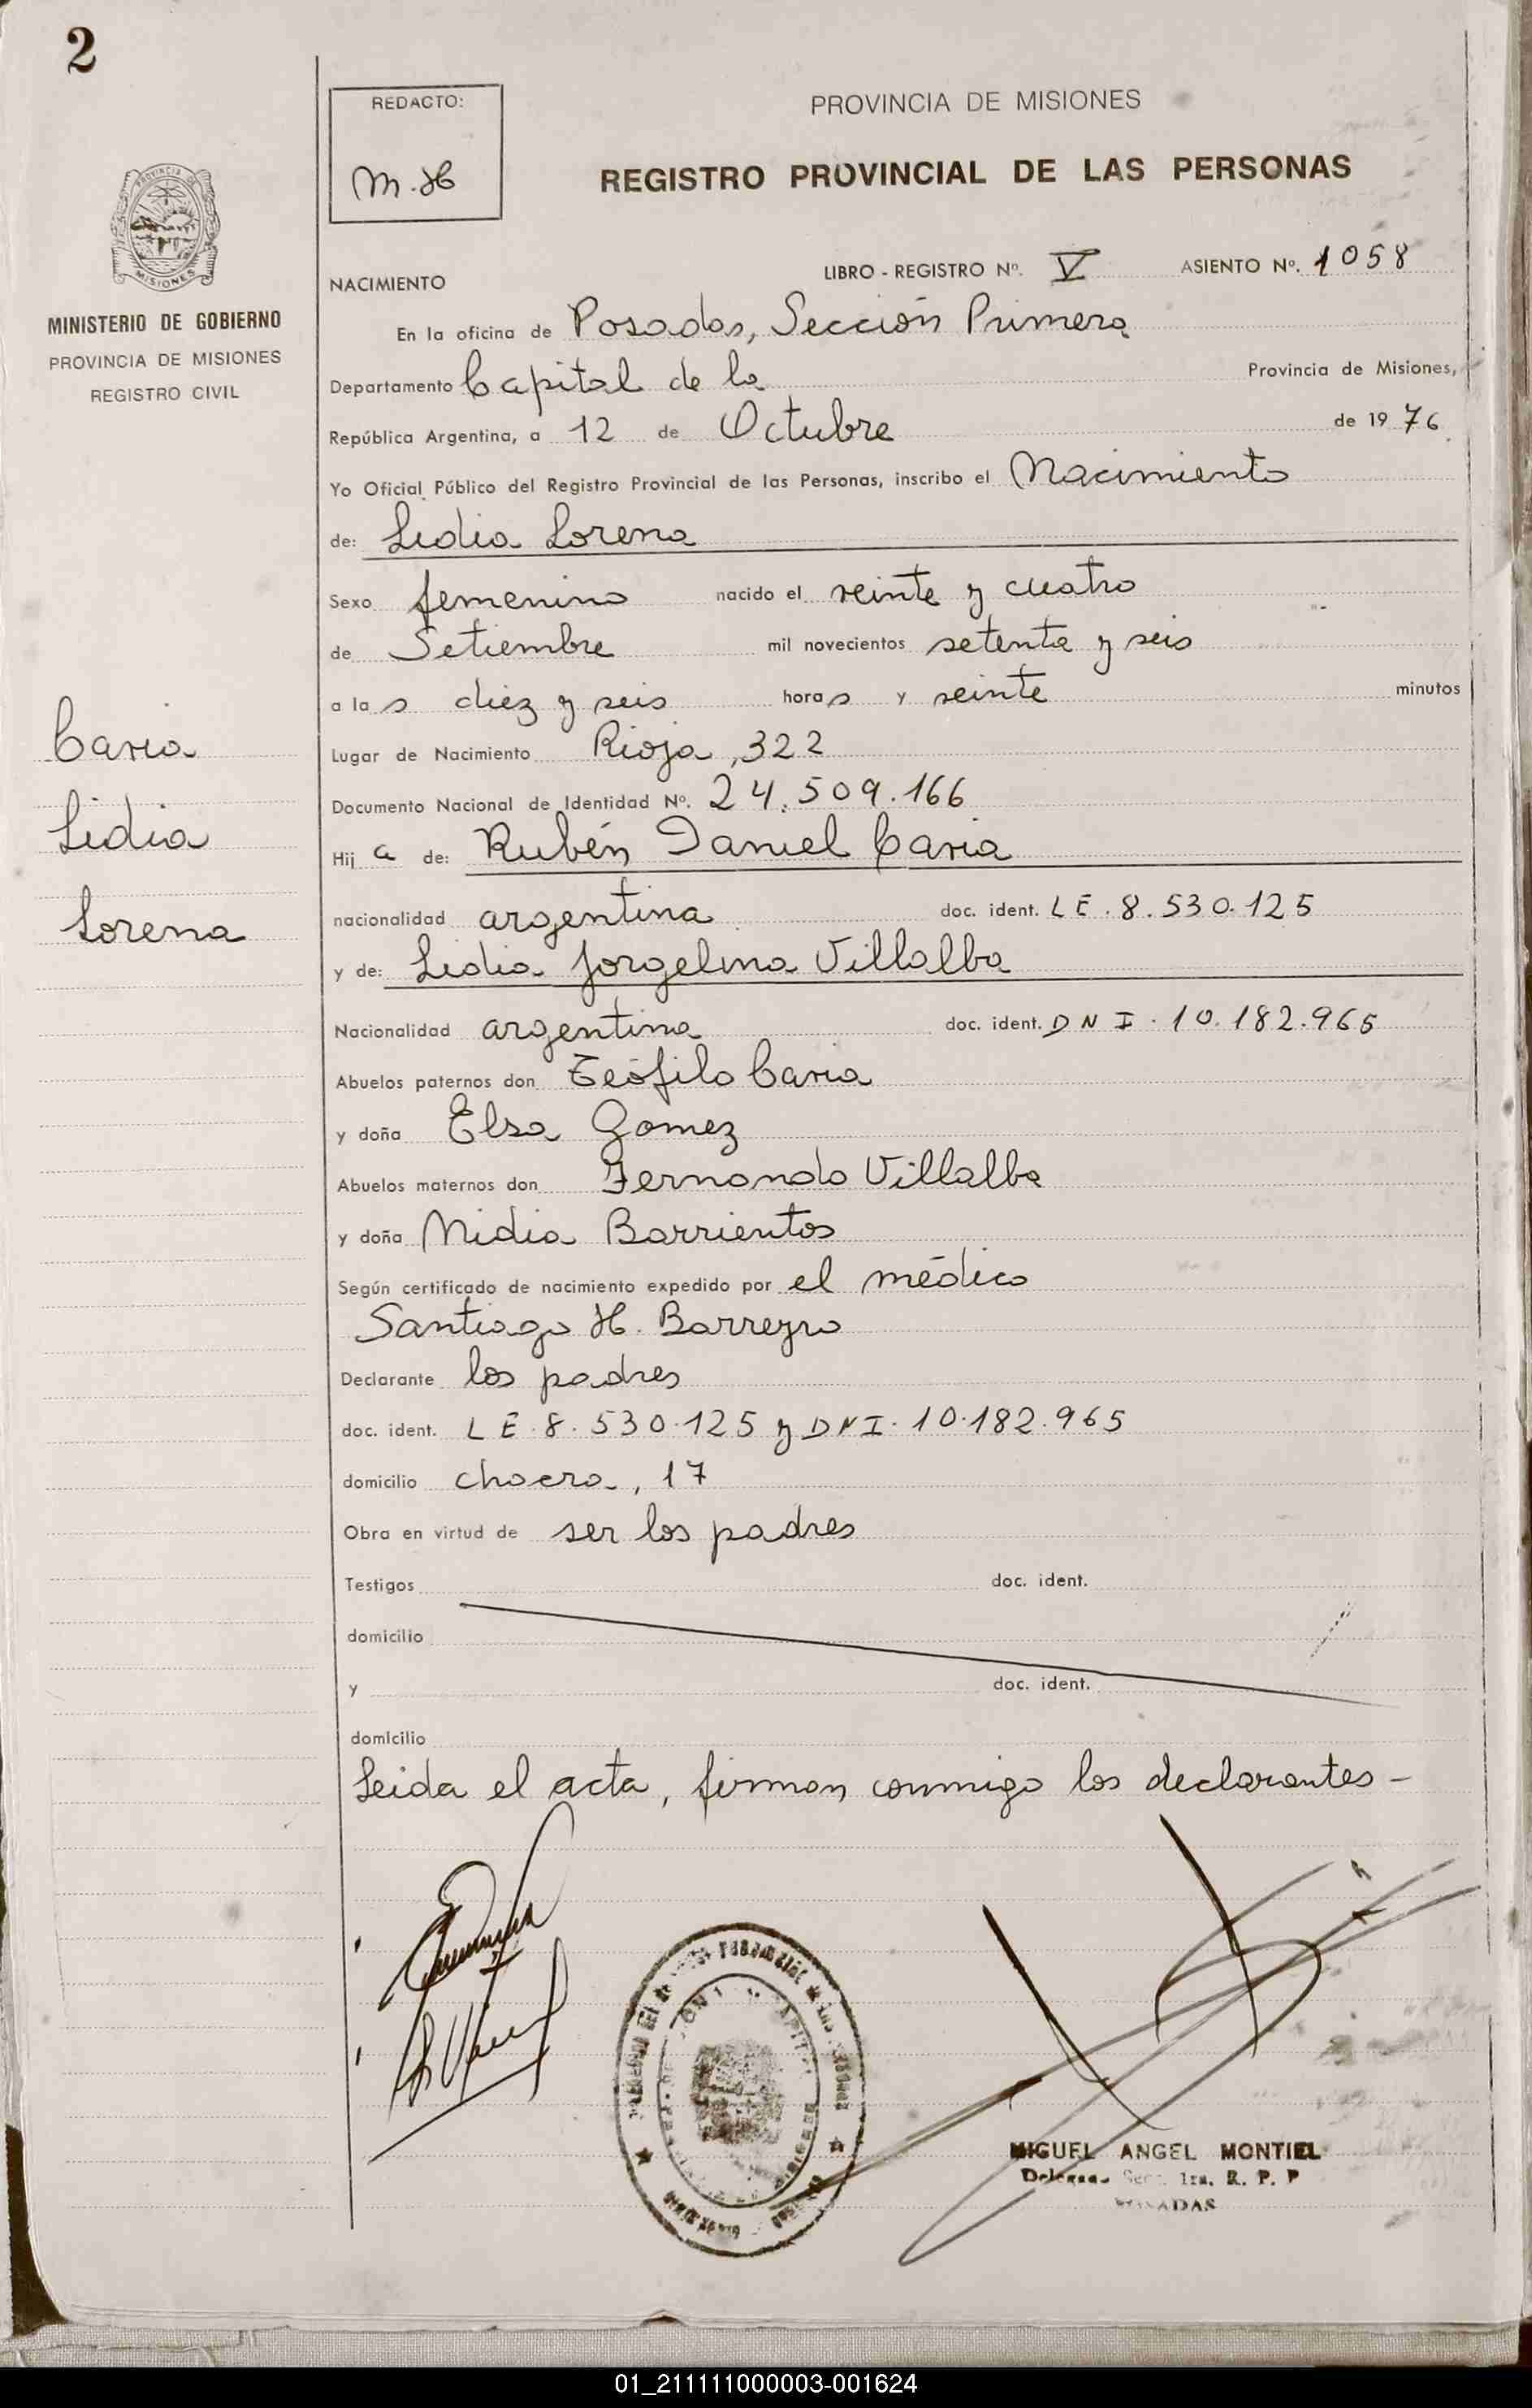 2
REDACTO:
M.H
PROVINCIA DE MISIONES
REGISTRO PROVINCIAL DE LAS PERSONAS
PROVINCIA DE
MISIONES
MINISTERIO DE GOBIERNO
PROVINCIA DE MISIONES
REGISTRO CIVIL
NACIMIENTO
LIBRO - REGISTRO Nº. V ASIENTO Nº. 1058
En la oficina de Posadas, Sección Primera
Departamento Capital de la Provincia de Misiones,
República Argentina, a 12 de Octubre de 1976
Yo Oficial Público del Registro Provincial de las Personas, inscribo el Nacimiento
de: Lidia Lorena
Sexo femenino nacido el veinte y cuatro
de Setiembre mil novecientos setenta y seis
a las diez y seis horas y veinte minutos
Lugar de Nacimiento Rioja, 322
Documento Nacional de Identidad Nº. 24.509.166
Hija de: Rubén Daniel Caria
nacionalidad argentina doc. ident. LE. 8.530.125
y de: Lidia Jorgelina Villalba
Nacionalidad argentina doc. ident. DNI. 10.182.965
Abuelos paternos don Teófilo Caria
y doña Elsa Gomez
Abuelos maternos don Fernando Villalba
y doña Nidia Barrientos
Según certificado de nacimiento expedido por el médico
Santiago H. Barreyro
Declarante los padres
doc. ident. LE. 8.530.125 y DNI. 10.182.965
domicilio chacra, 17
Obra en virtud de ser los padres
Testigos doc. ident.
domicilio
y doc. ident.
domicilio
Leida el acta, firman conmigo los declarantes -
Caria
Lidia
Lorena
MIGUEL ANGEL MONTIEL
Secc. 1ra. R. P. P
POSADAS
01_211111000003-001624